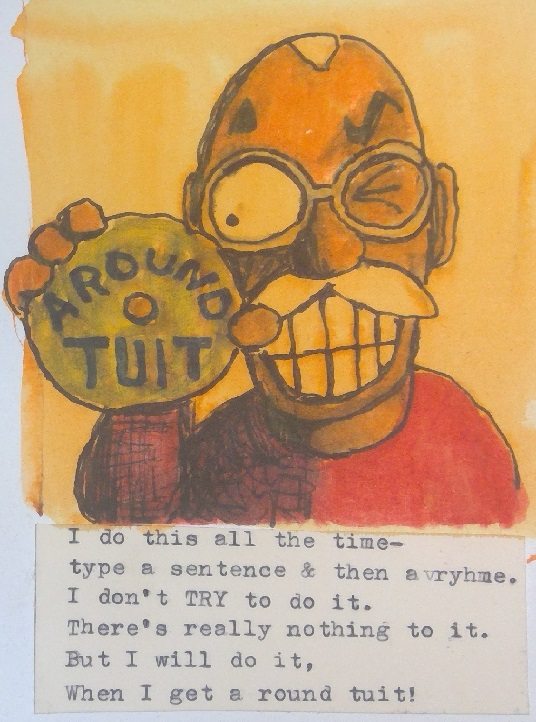 AROUND
TUIT
I do this all the time-
type a sentence & then a vryhme.
I don't TRY to do it.
There's really nothing to it.
But I will do it,
When I get a round tuit!